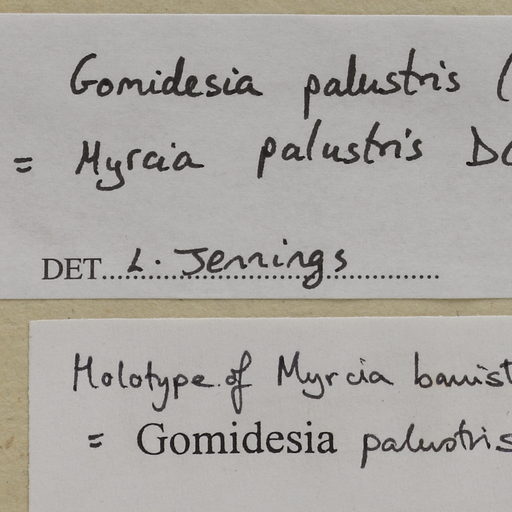 Gomidesia palustris (
= Myrcia palustris DC
DET... L. Jennings
Holotype of Myrcia
= Gomidesia palustris